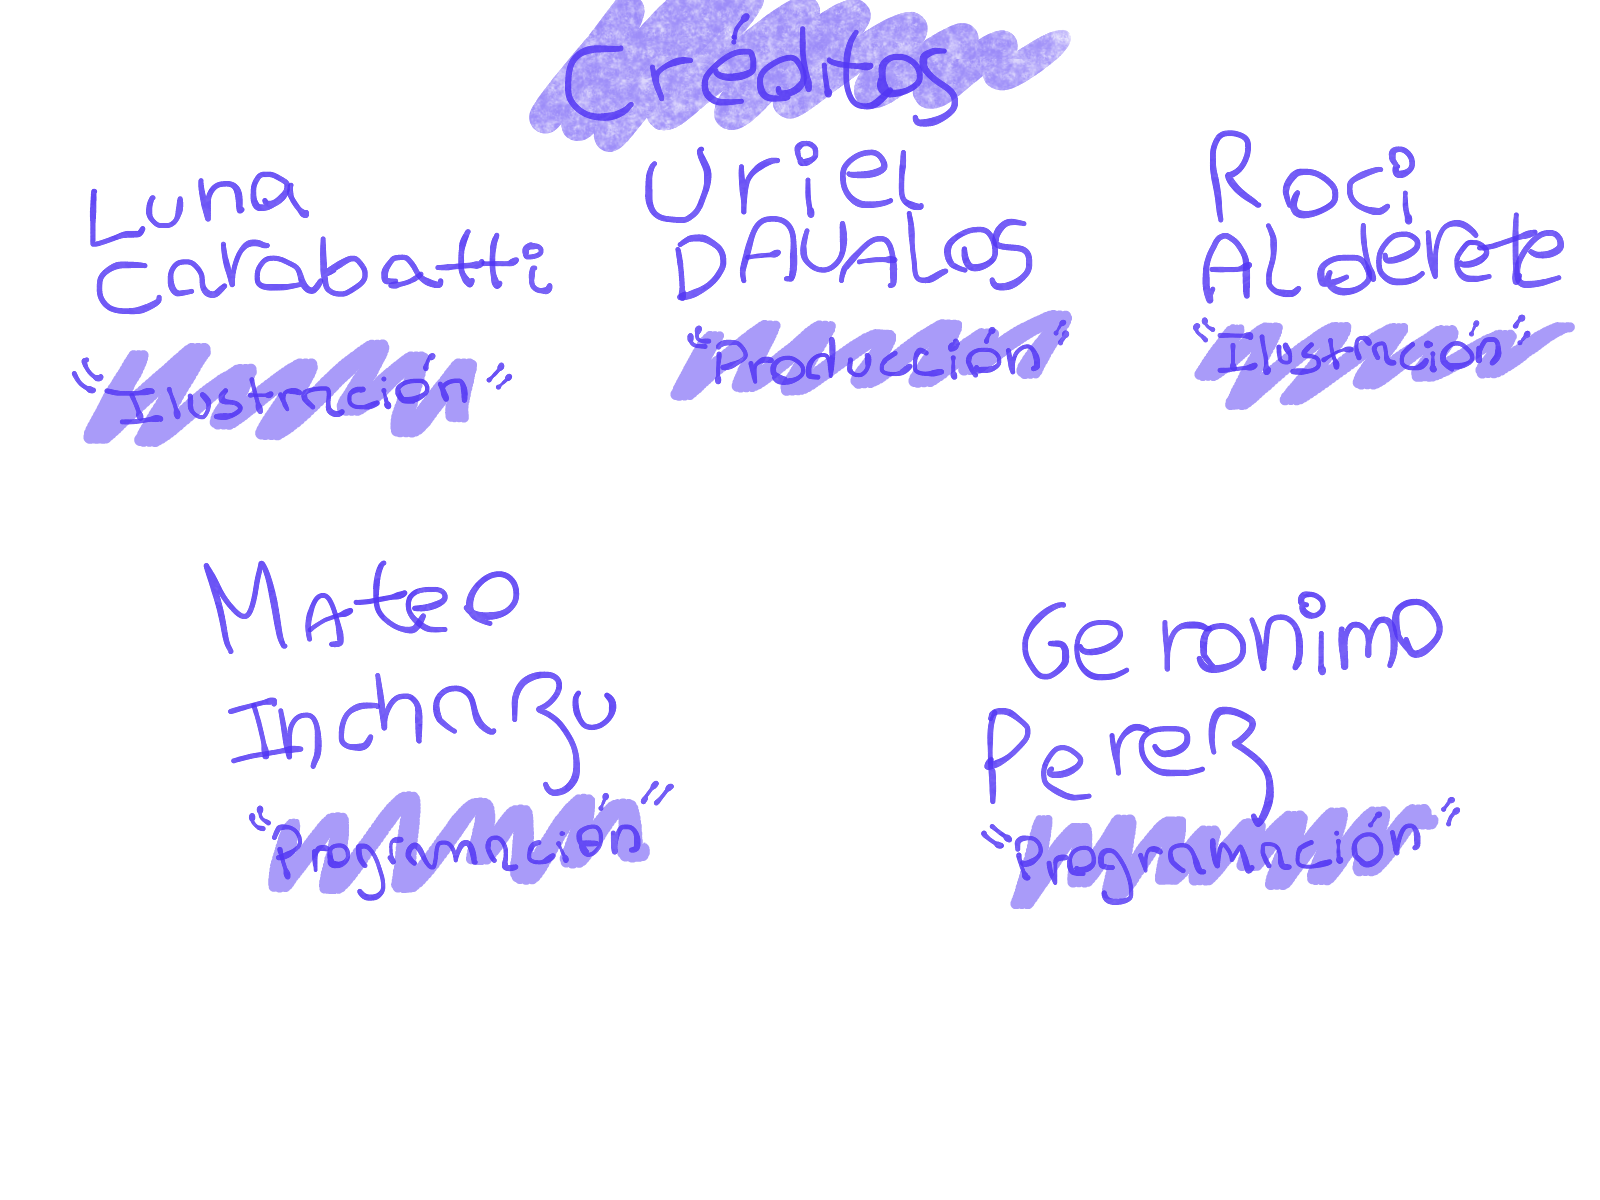 Créditos
Luna
Carabatti
"Ilustración"
Uriel
DAVALOS
"Producción"
Roci
ALderete
"Ilustración"
Mateo
Inchazu
"Programación"
Geronimo
Perez
"Programación"